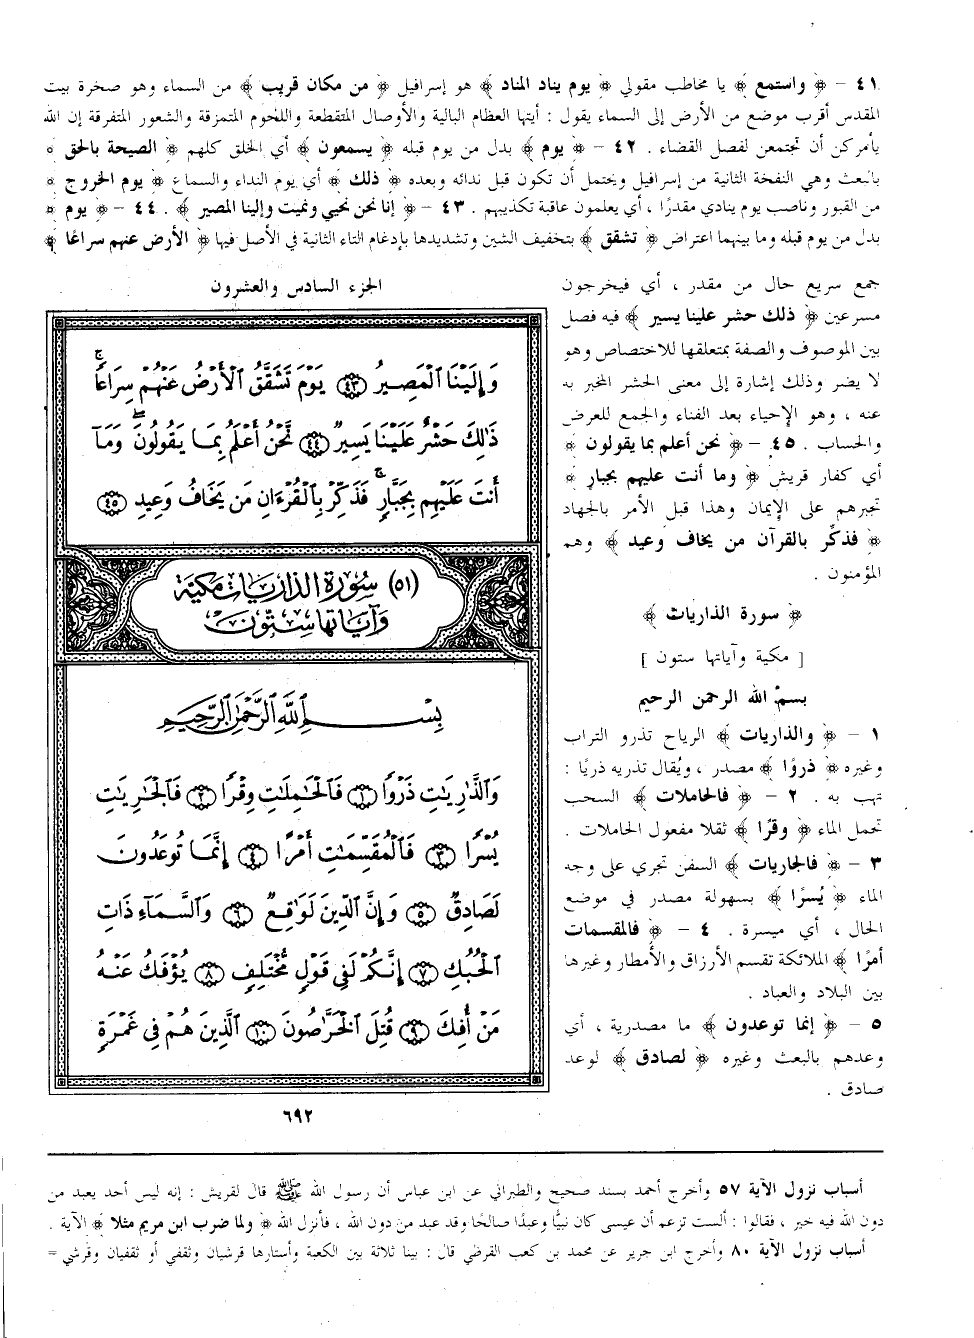 ٤١ - ﴿ واستمع ﴾ يا مخاطب مقولي ﴿ يوم يناد المناد ﴾ هو إسرافيل ﴿ من مكان قريب ﴾ من السماء وهو صخرة بيت
المقدس أقرب موضع من الأرض إلى السماء يقول : أيتها العظام البالية والأوصال المتقطعة واللحوم المتمزقة والشعور المتفرقة إن الله
يأمركن أن تجتمعن لفصل القضاء . ٤٢ - ﴿ يوم ﴾ بدل من يوم قبله ﴿ يسمعون ﴾ أي الخلق كلهم ﴿ الصيحة بالحق ﴾
بالبعث وهي النفخة الثانية من إسرافيل ويحتمل أن تكون قبل ندائه وبعده ﴿ ذلك ﴾ أي يوم النداء والسماع ﴿ يوم الخروج ﴾
من القبور وناصب يوم ينادي مقدرًا ، أي يعلمون عاقبة تكذيبهم . ٤٣ - ﴿ إنا نحن نحيي ونميت وإلينا المصير ﴾ . ٤٤ - ﴿ يوم ﴾
بدل من يوم قبله وما بينهما اعتراض ﴿ تشقق ﴾ بتخفيف الشين وتشديدها بإدغام التاء الثانية في الأصل فيها ﴿ الأرض عنهم سراعًا ﴾
جمع سريع حال من مقدر ، أي فيخرجون
مسرعين ﴿ ذلك حشر علينا يسير ﴾ فيه فصل
بين الموصوف والصفة بمتعلقها للاختصاص وهو
لا يضر وذلك إشارة إلى معنى الحشر المخبر به
عنه ، وهو الإحياء بعد الفناء والجمع للعرض
والحساب . ٤٥ - ﴿ نحن أعلم بما يقولون ﴾
أي كفار قريش ﴿ وما أنت عليهم بجبار ﴾
تجبرهم على الإيمان وهذا قبل الأمر بالجهاد
﴿ فذكّر بالقرآن من يخاف وعيد ﴾ وهم
المؤمنون .
﴿ سورة الذاريات ﴾
[ مكية وآياتها ستون ]
بسم الله الرحمن الرحيم
١ - ﴿ والذاريات ﴾ الرياح تذرو التراب
وغيره ﴿ ذروًا ﴾ مصدر ، ويُقال تذريه ذريًا :
تهب به . ٢ - ﴿ فالحاملات ﴾ السحب
تحمل الماء ﴿ وقرًا ﴾ ثقلا مفعول الحاملات .
٣ - ﴿ فالجاريات ﴾ السفن تجري على وجه
الماء ﴿ يُسرًا ﴾ بسهولة مصدر في موضع
الحال ، أي ميسرة . ٤ - ﴿ فالمقسمات
أمرًا ﴾ الملائكة تقسم الأرزاق والأمطار وغيرها
بين البلاد والعباد .
٥ - ﴿ إنما توعدون ﴾ ما مصدرية ، أي
وعدهم بالبعث وغيره ﴿ لصادق ﴾ لوعد
صادق .
الجزء السادس والعشرون
وَإِلَيْنَا ٱلْمَصِيرُ ٤٣ يَوْمَ تَشَقَّقُ ٱلْأَرْضُ عَنْهُمْ سِرَاعًا ۚ
ذَٰلِكَ حَشْرٌ عَلَيْنَا يَسِيرٌ ٤٤ نَّحْنُ أَعْلَمُ بِمَا يَقُولُونَ ۖ وَمَآ
أَنتَ عَلَيْهِم بِجَبَّارٍ ۖ فَذَكِّرْ بِٱلْقُرْءَانِ مَن يَخَافُ وَعِيدِ ٤٥
(٥١) سورة الذاريات مكية
وآياتها ستون
بِسْمِ ٱللَّهِ ٱلرَّحْمَٰنِ ٱلرَّحِيمِ
وَٱلذَّٰرِيَٰتِ ذَرْوًا ١ فَٱلْحَٰمِلَٰتِ وِقْرًا ٢ فَٱلْجَٰرِيَٰتِ
يُسْرًا ٣ فَٱلْمُقَسِّمَٰتِ أَمْرًا ٤ إِنَّمَا تُوعَدُونَ
لَصَادِقٌ ٥ وَإِنَّ ٱلدِّينَ لَوَٰقِعٌ ٦ وَٱلسَّمَآءِ ذَاتِ
ٱلْحُبُكِ ٧ إِنَّكُمْ لَفِى قَوْلٍ مُّخْتَلِفٍ ٨ يُؤْفَكُ عَنْهُ
مَنْ أُفِكَ ٩ قُتِلَ ٱلْخَرَّٰصُونَ ١٠ ٱلَّذِينَ هُمْ فِى غَمْرَةٍ
٦٩٢
أسباب نزول الآية ٥٧ وأخرج أحمد بسند صحيح والطبراني عن ابن عباس أن رسول الله ﷺ قال لقريش : إنه ليس أحد يعبد من
دون الله فيه خير ، فقالوا : ألست تزعم أن عيسى كان نبيًّا وعبدًا صالحًا وقد عبد من دون الله ، فأنزل الله ﴿ ولما ضرب ابن مريم مثلا ﴾ الآية .
أسباب نزول الآية ٨٠ وأخرج ابن جرير عن محمد بن كعب القرظي قال : بينا ثلاثة بين الكعبة وأستارها قرشيان وثقفي أو ثقفيان وقرشي =